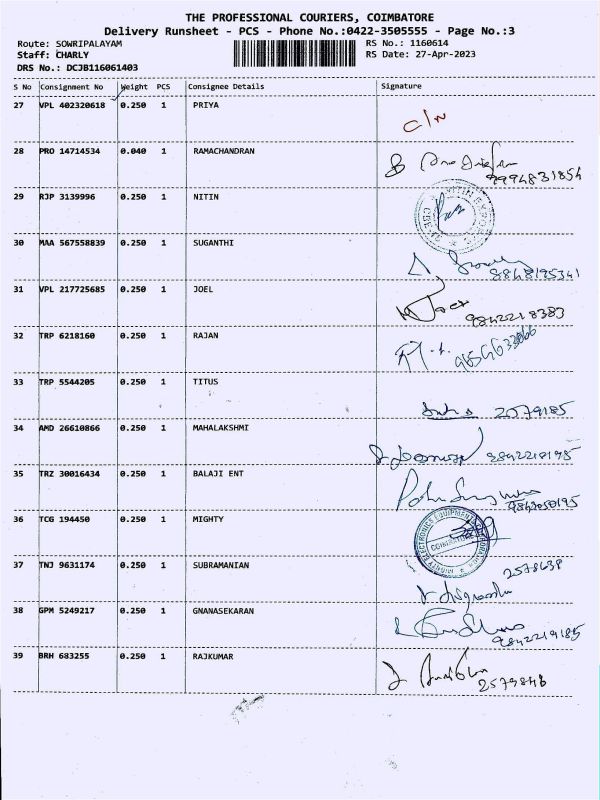 THE PROFESSIONAL COURIERS, COIMBATORE
Delivery Runsheet - PCS - Phone No.:0422-3505555 - Page No.:3
Route: SOWRIPALAYAM
RS No.: 1160614
Staff: CHARLY
RS Date: 27-Apr-2023
DRS No.: DCJB116061403
S No Consignment No Weight PCS Consignee Details Signature
27 VPL 402320618 0.250 1 PRIYA
28 PRO 14714534 0.040 1 RAMACHANDRAN
9994831854
29 RJP 3139996 0.250 1 NITIN
30 MAA 567558839 0.250 1 SUGANTHI
9848195341
31 VPL 217725685 0.250 1 JOEL
9842218383
32 TRP 6218160 0.250 1 RAJAN
33 TRP 5544205 0.250 1 TITUS
2579185
34 AMD 26610866 0.250 1 MAHALAKSHMI
9842218195
35 TRZ 30016434 0.250 1 BALAJI ENT
36 TCG 194450 0.250 1 MIGHTY
37 TNJ 9631174 0.250 1 SUBRAMANIAN
2578638
38 GPM 5249217 0.250 1 GNANASEKARAN
9842219185
39 BRH 683255 0.250 1 RAJKUMAR